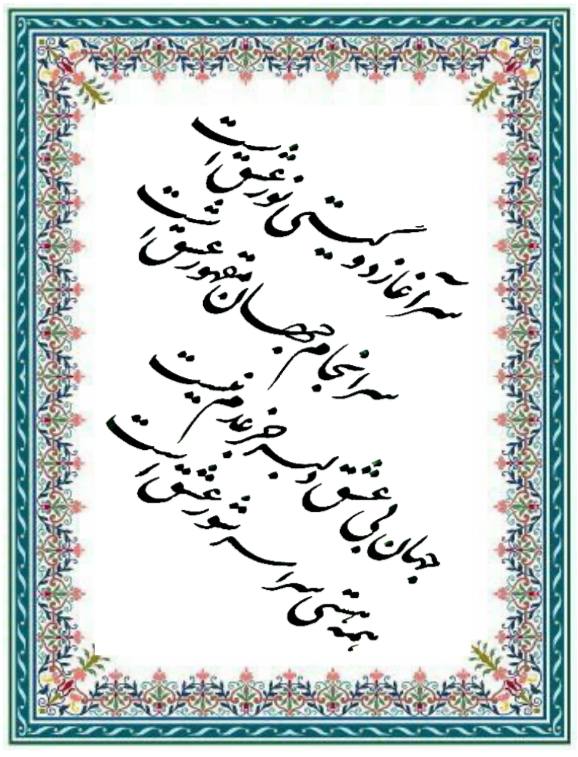 سرآغاز دو گیتی نور عشق است
سرانجام جهان مقهور عشق است
جهان بی عشق دلبر جز عدم نیست
همه هستی سراسر شور عشق است